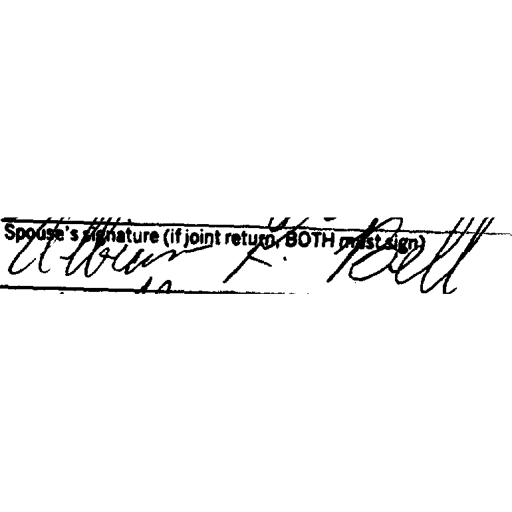 Spouse's signature (if joint return, BOTH must sign)
F. Bell